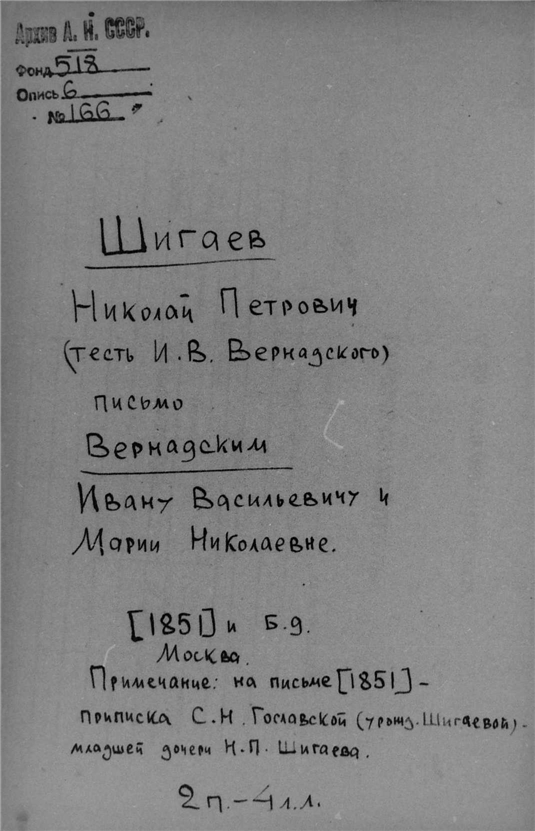 Архив А. Н. СССР.
Фонд 518
Опись 6
№ 166
Шигаев
Николай Петрович
(тесть И.В. Вернадского)
письмо
Вернадским
Ивану Васильевичу и
Марии Николаевне.
[1851] и Б.д.
Москва.
Примечание: на письме [1851] -
приписка С.Н. Гославской (урожд. Шигаевой) -
младшей дочери Н.П. Шигаева.
2 п. - 4 л.л.